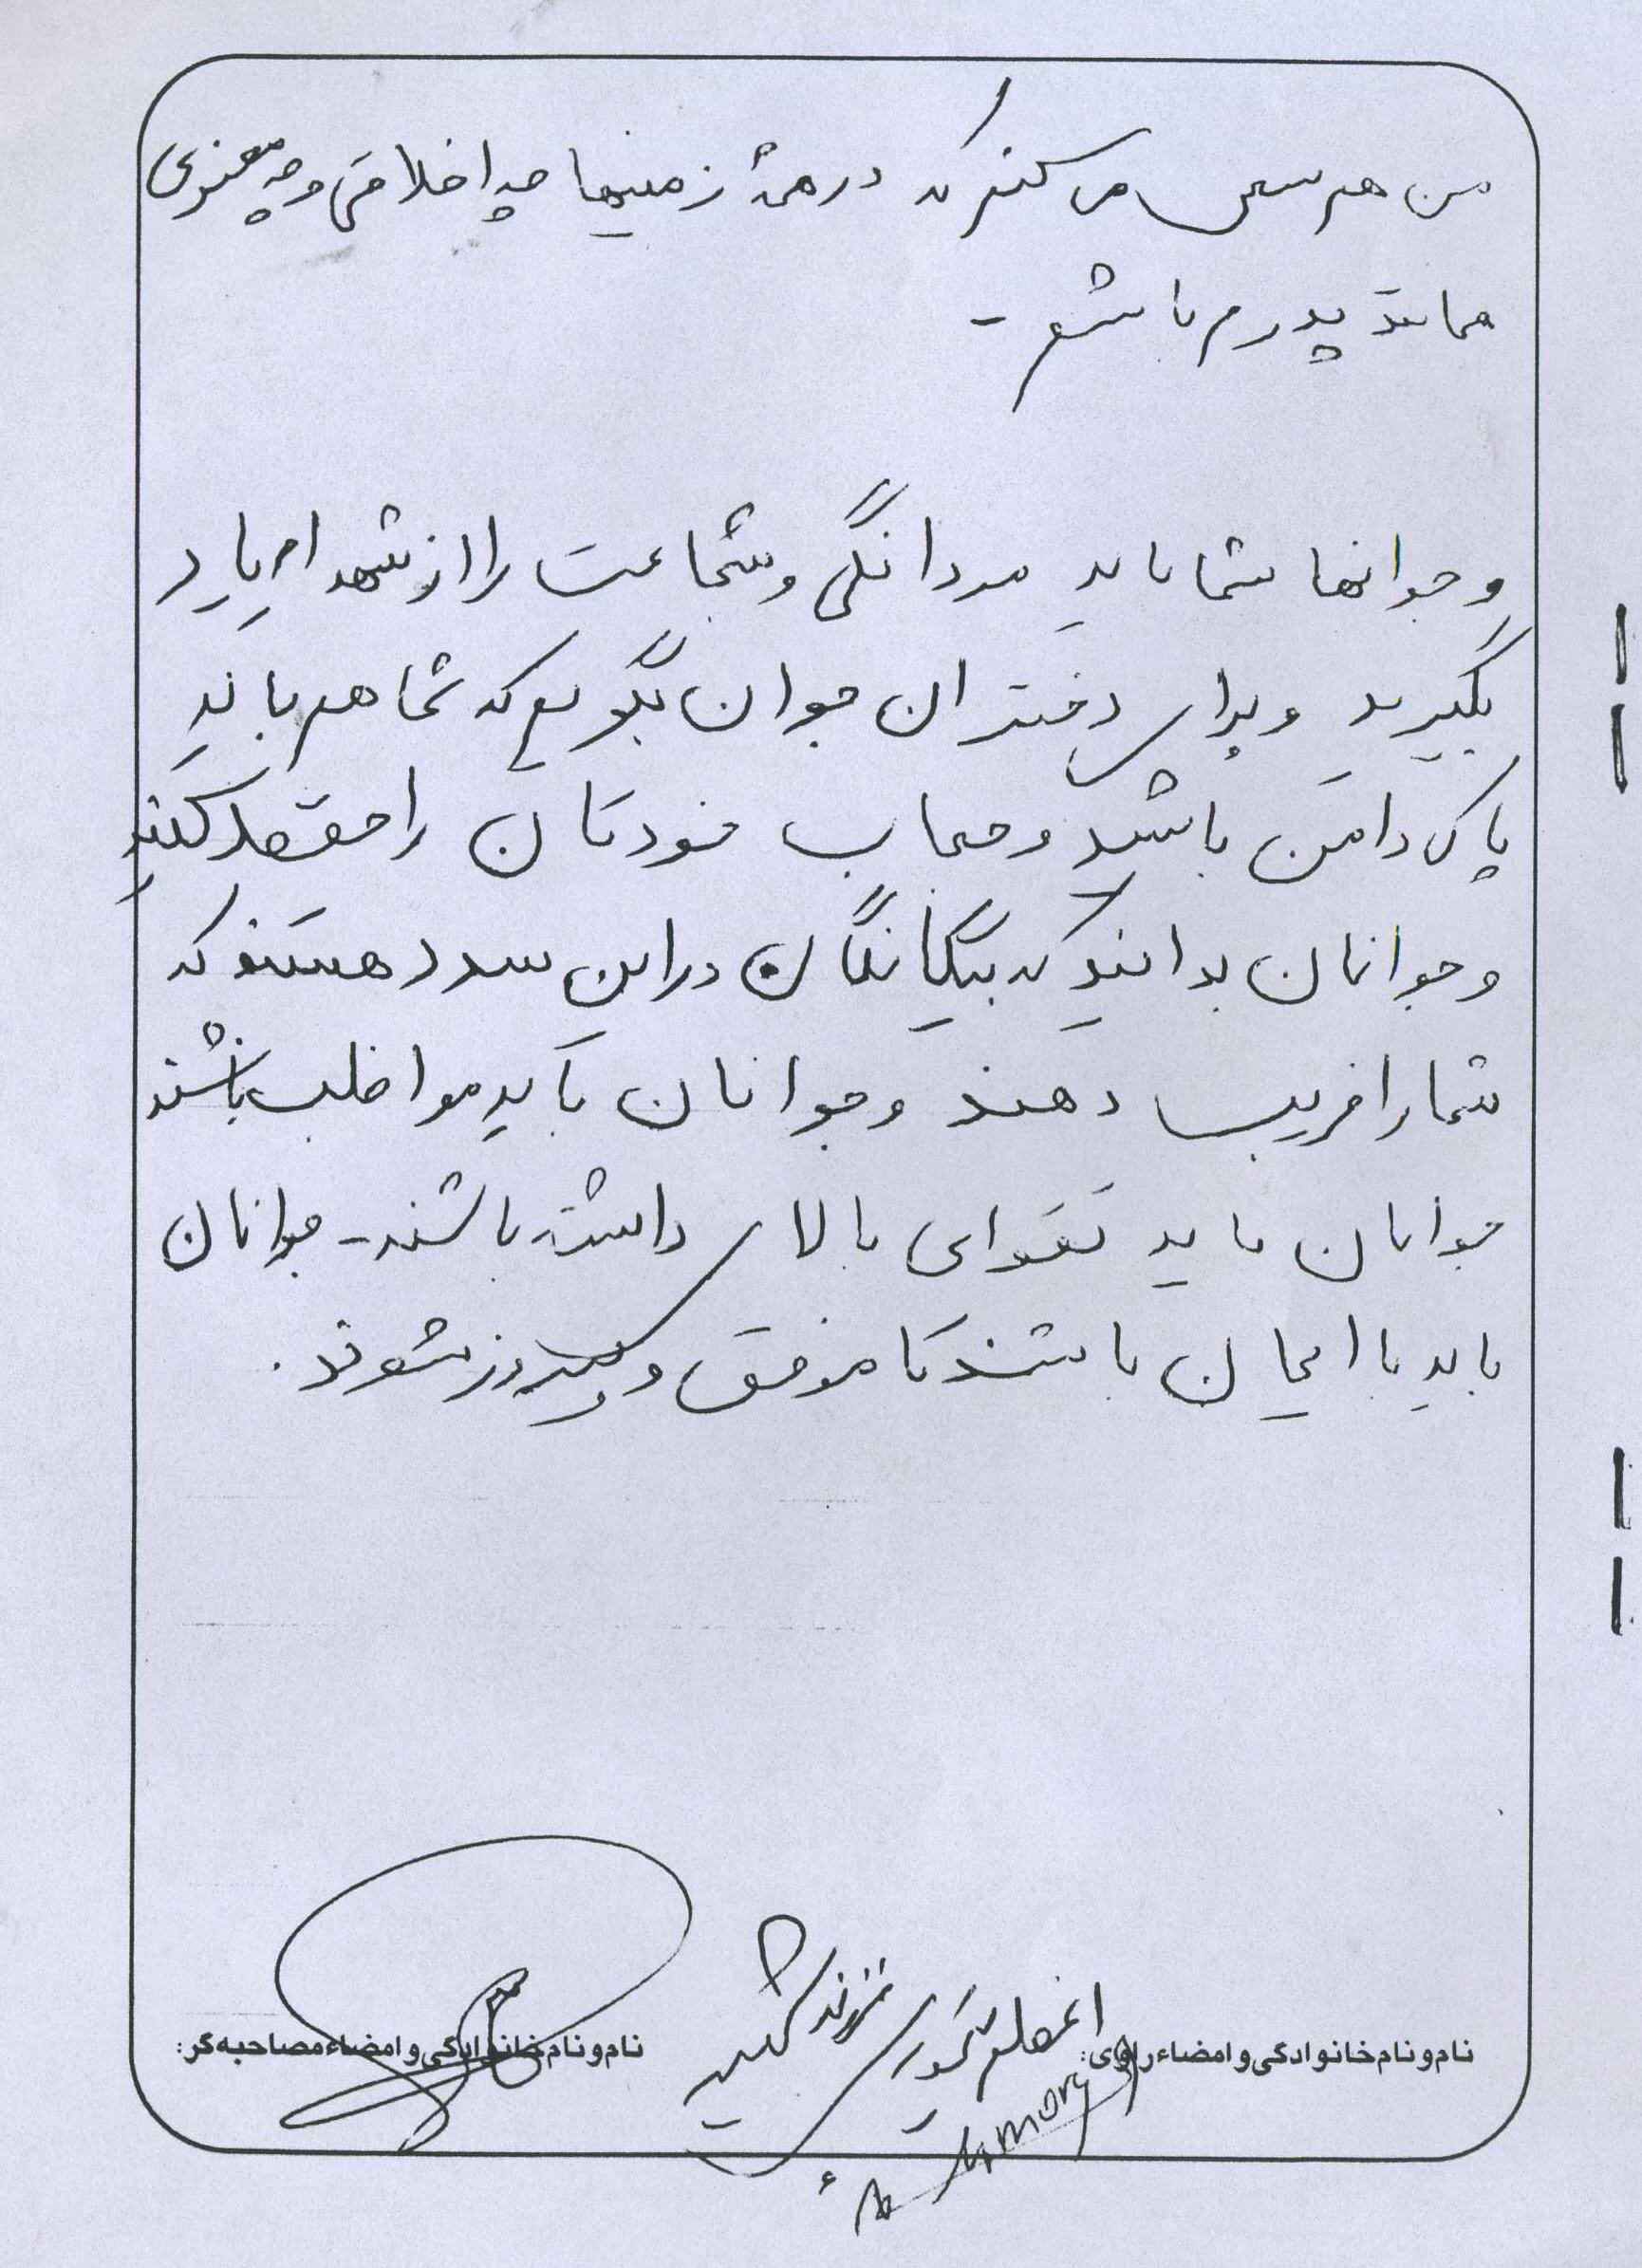 من هم سعی می کنم که در همهٔ زمینها چه اخلاقی و چه معنوی
همانند پدرم باشم -
وجوانها شما باید مردانگی و شجاعت را از شهدا م یاد
بگیرید و برای دختران جوان بگویم که شما هم باید
پاک دامن باشید و حجاب خودتان را حفظ کنید
و جوانان بدانید که بیگانگان در این سدد هستند که
شما را فریب دهند و جوانان باید مواظب باشند
جوانان باید تقوای بالای داشته باشند - جوانان
باید با ایمان باشند تا موفق و پیروز شوند.
نام و نام خانوادگی و امضاء راوی:
فرزند شهید
نام و نام خانوادگی و امضاء مصاحبه گر: